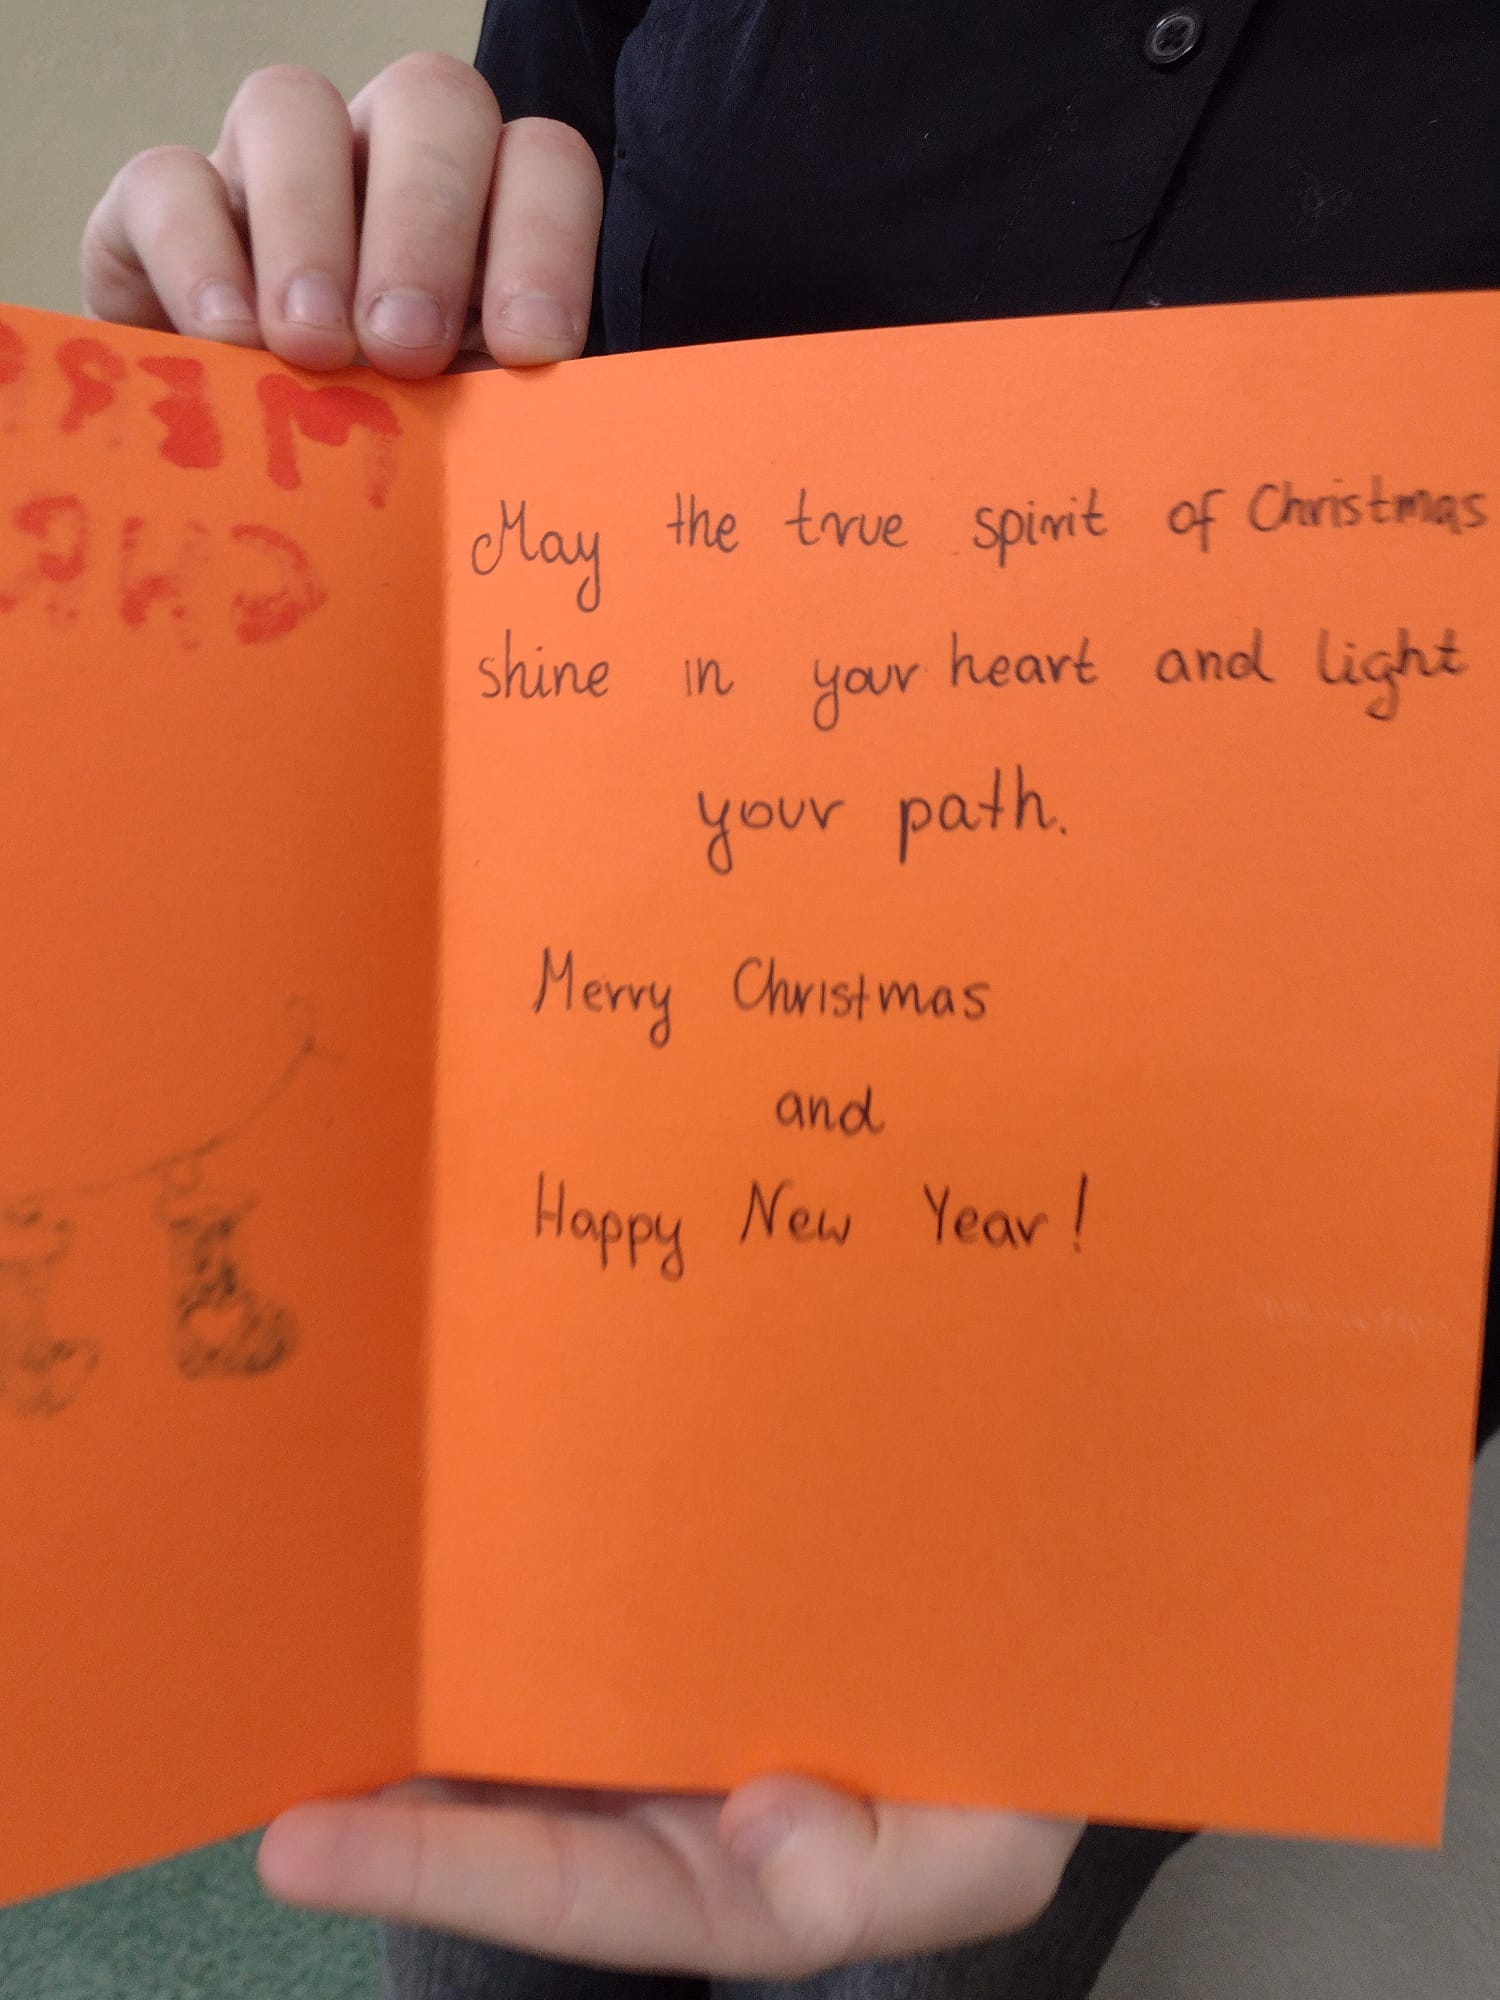 May the true spirit of Christmas
shine in your heart and light
your path.
Merry Christmas
and
Happy New Year!